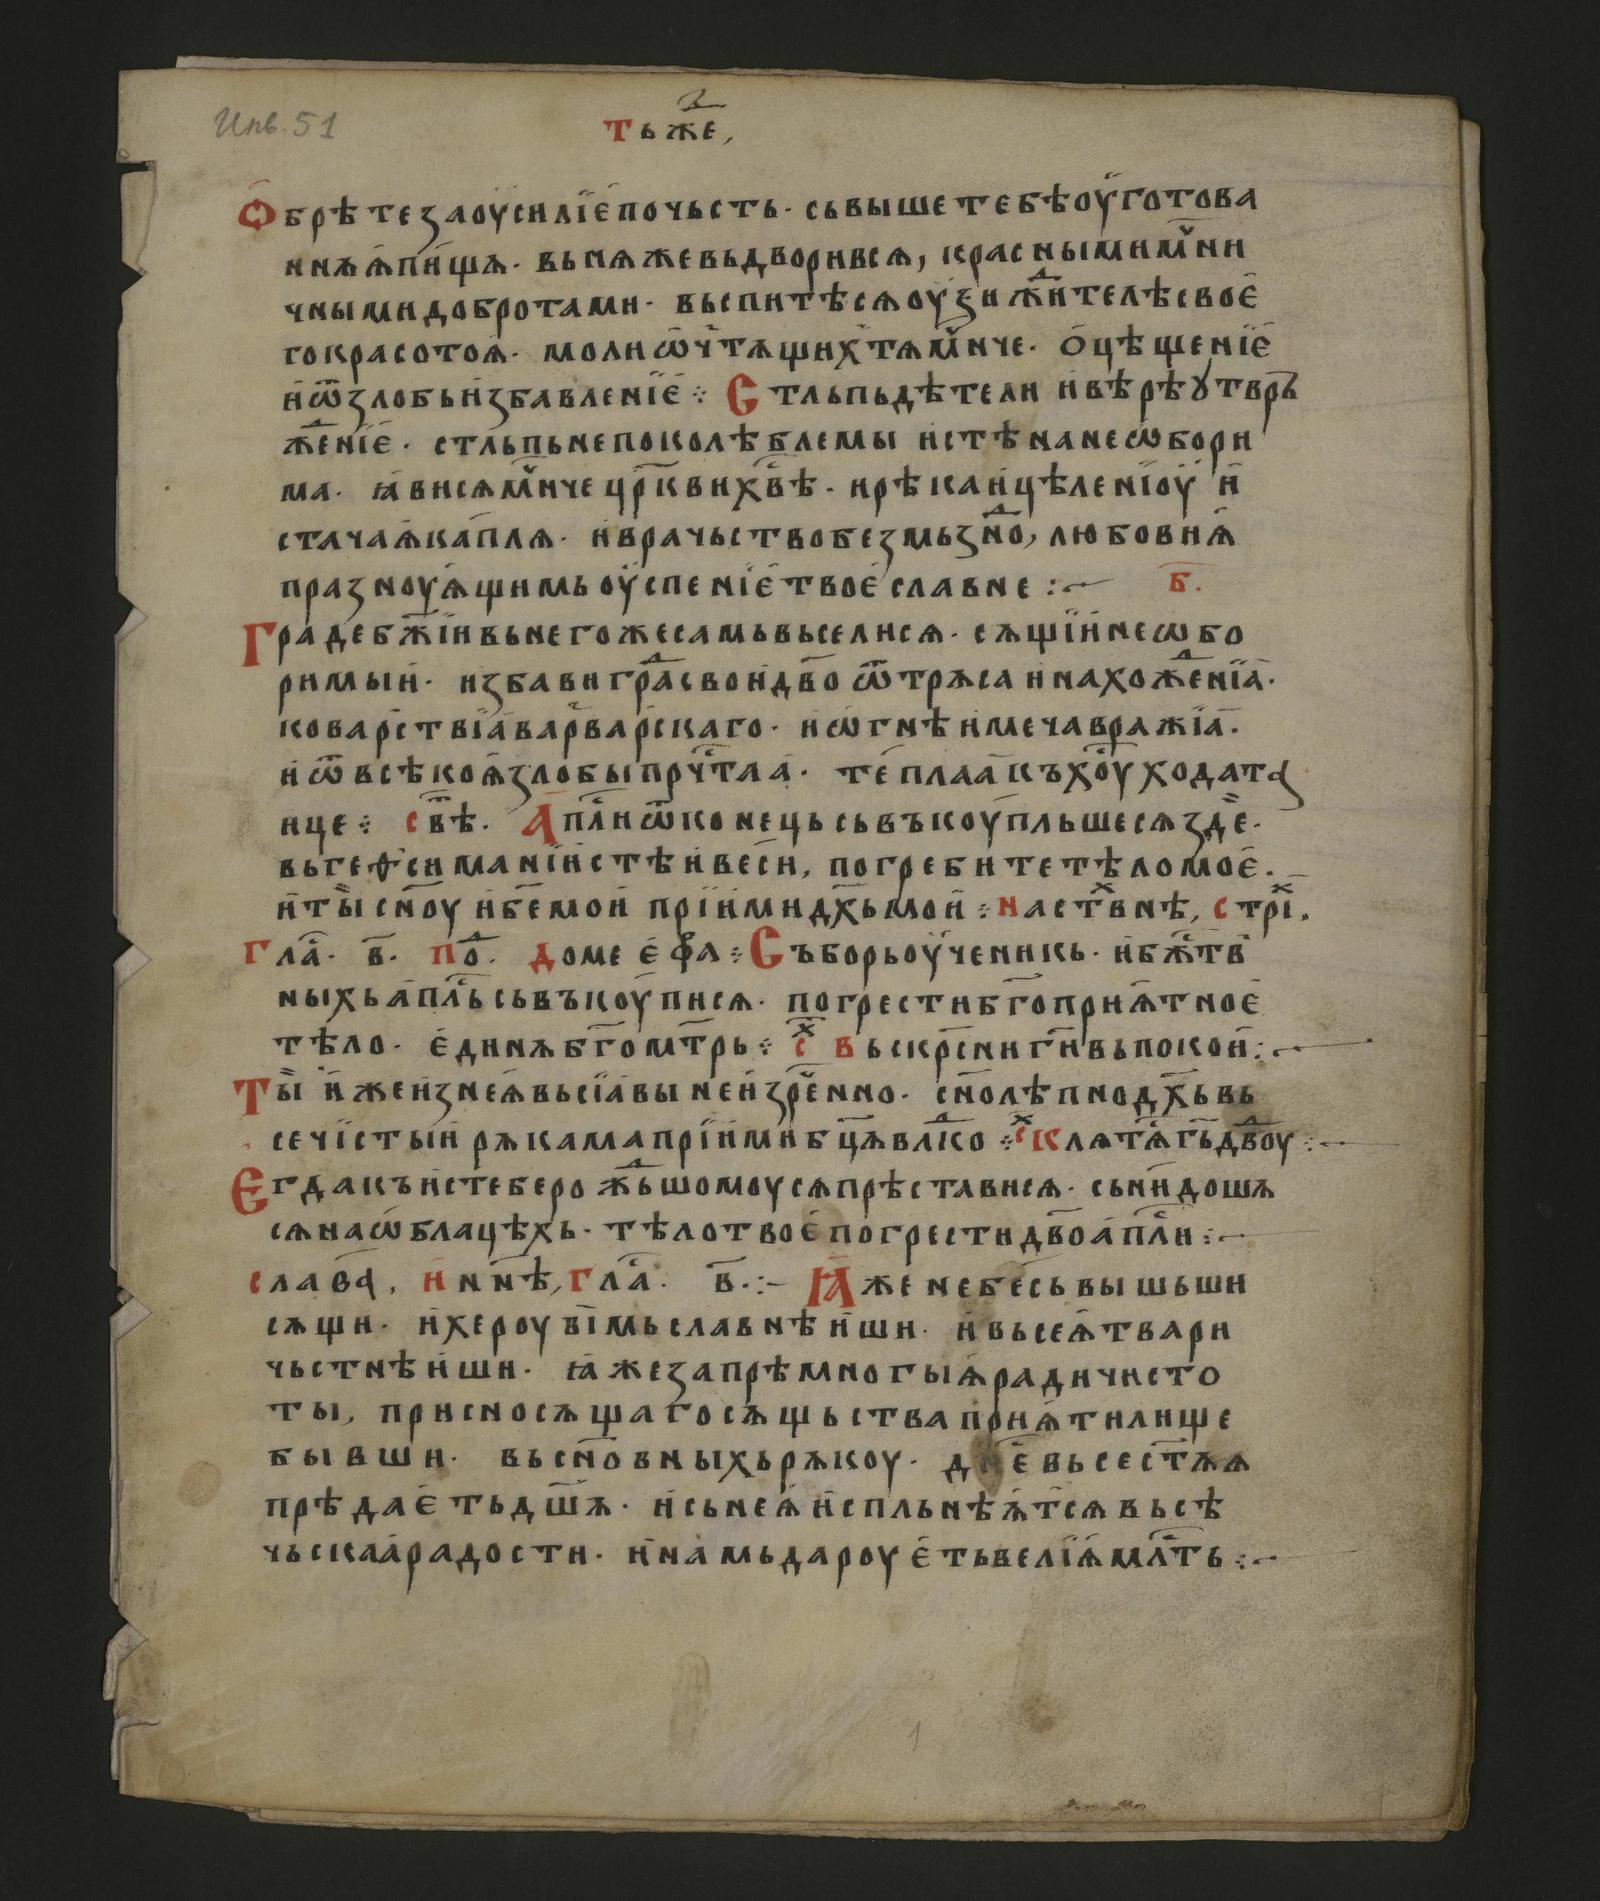 Инв. 51
тьж҃е,
Ѡбрѣте заоусилїе почьсть· сьвыше тебѣ оуготова
ннѫѧ пищѫ· вь нѧже вьдворивсѧ, красными мч҃ни
чными добротами· вьспитѣ сѧ оу зиждителѣ свое
го красотоѧ· моли ѡ чтѫщих тѧ мч҃нче· оцѣщенїе
и ѿ злобь избавленїе ⁘ Стльпь дѣтели и вѣрѣ ꙋтврь
жденїе· стльпь непоколѣблемы и стѣна неѡбори
ма· ꙗви сѧ мч҃нче црк҃ви хв҃ѣ· и рѣка ицѣленїоу и
стачаѧ каплѧ· и врачьство безмьзд҃но, любовиѧ
празноуѧщимь оуспенїе твое славне :~ б҃.
Граде бж҃їи вь негоже самь вьсели сѧ· сѫщїи неѡбо
римыи· избави град свои дв҃о ѿ трѫса и нахожденїа·
коварствїа варварскаго· и ѡгнѣ и меча вражїа·
и ѿ всѣкоѧ злобы прч҃таа· теплаа къ хо҃у ходата
ице ⁘ свѣ҃т· Апл҃и ѿ конець сьвъкоупльше сѧ здѐ·
вь геѳсиманїистѣи веси, погребите тѣло мое·
и ты сн҃оу и бе҃ мои прїими дх҃ь мои ⁘ на ств҃нѣ, стрⷯі·
гла҃· в҃· по҃д· доме еѳра ⁘ Съборь оученикь· и бж҃тв
ныхь апл҃ь сьвъкоупи сѧ· погрести бг҃оприѧтное
тѣло· единѫ бг҃омт҃рь ⁘ сⷯ вьскрс҃ни ги҃ вь покои :~
Ты иже из неѧ вьсїавы неизрч҃енно· сн҃олѣпно дх҃ь вь
сечїстыи рѫкама прїими бц҃ѫ влⷣко ⁘ сⷯ клѧтсѧ гь҃ двⷣоу :~
Егда къ ис тебе рождьшомоу сѧ прѣстави сѧ· сьнидошѫ
сѧ на ѡблацѣхь· тѣло твое погрести дв҃о апл҃и :~
слава, и нн҃ѣ, гла҃· в҃· :~ Ꙗже небесь вышьши
сѫщи· и хероувїмь славнѣиши· и вьсеѧ твари
чьстнѣиши· ꙗже за прѣмногыѧ ради чисто
ты, присносѫщаго сѫщьства приѧтилище
бывши· вь сн҃овныхь рѫкоу· дн҃е вьсест҃ѫѧ
прѣдаеть дш҃ѫ· и сь неѧ испльнѣѧтсѧ вьсѣ
чьскаа радости· и намь дароуеть велїѧ млⷭ҇ть :~
1